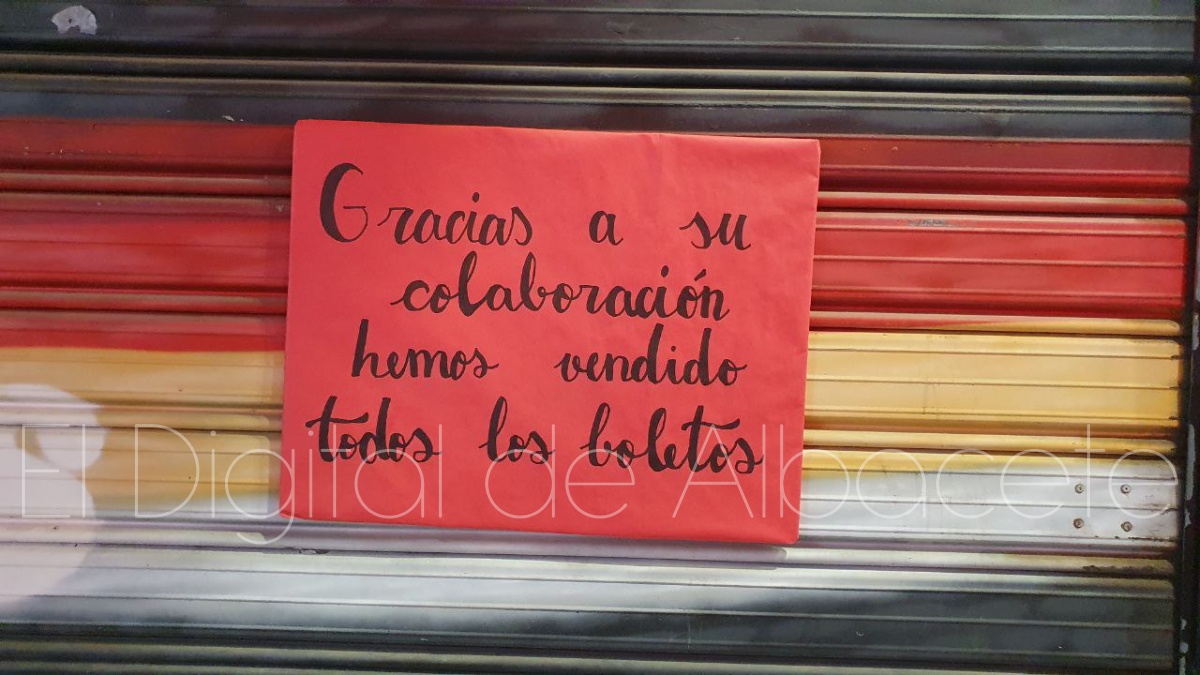 Gracias a su
colaboración
hemos vendido
todos los boletos
El Digital de Albacete